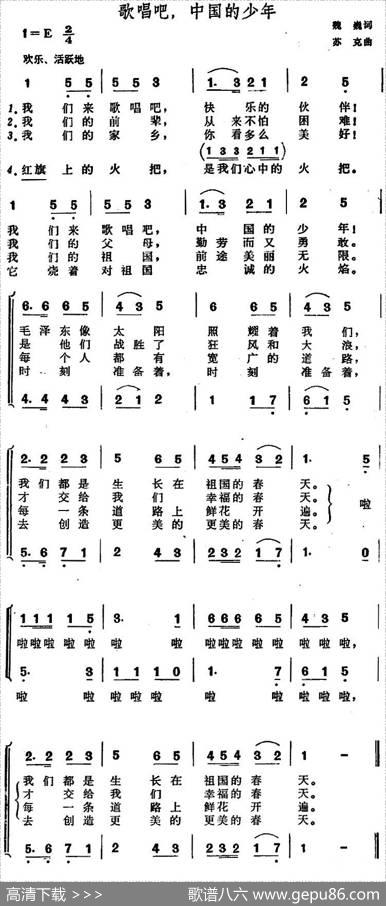 歌唱吧，中国的少年
1=E 2/4
魏巍词
苏克曲
欢乐、活跃地
1 55 | 553 | 1·321 | 2 5 |
1.我们来歌唱吧， 快乐的伙伴！
2.我们的前辈， 从来不怕困难！
3.我们的家乡， 你看多么美好！
(1 33 211)
4.红旗上的火把， 是我们心中的火把。
1 55 | 553 | 1·321 | 2 5 |
我们来歌唱吧， 中国的少年！
我们的父母， 勤劳而又勇敢。
我们的祖国， 前途美丽无限。
它烧着对祖国 忠诚的火焰。
6·665 | 435 | 1 65 | 435 |
毛泽东像太阳 照耀着我们，
是他们战胜了 狂风和大浪，
每个人都有 宽广的道路，
时刻准备着， 时刻准备着，
4·443 | 212 | 1 17 | 615 |
2·223 | 5 65 | 45432 | 1· 5 |
我们都是生长在祖国的春天。 啦
才交给我们 幸福的春天。
每一条道路上 鲜花开遍。
去创造更美的 更美的春天。
5·671 | 2 43 | 23217 | 1· 0 |
11115 | 3· 1 | 66665 | 435 |
啦啦啦啦啦 啦 啦 啦啦啦啦啦 啦啦啦，
5· 3 | 1110 | 1· 7 | 615 |
啦 啦 啦啦啦 啦 啦 啦啦啦，
2·223 | 5 65 | 45432 | 1 - ‖
我们都是生长在祖国的春天。
才交给我们 幸福的春天。
每一条道路上 鲜花开遍。
去创造更美的 更美的春天。
5·671 | 2 43 | 23217 | 1 - ‖
高清下载 >>>
歌谱八六 www.gepu86.com